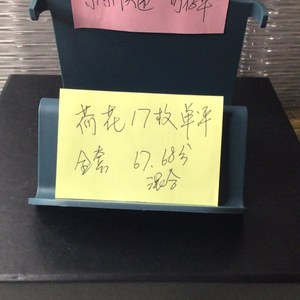 荷花17枚单评
全套 67.68分
混合